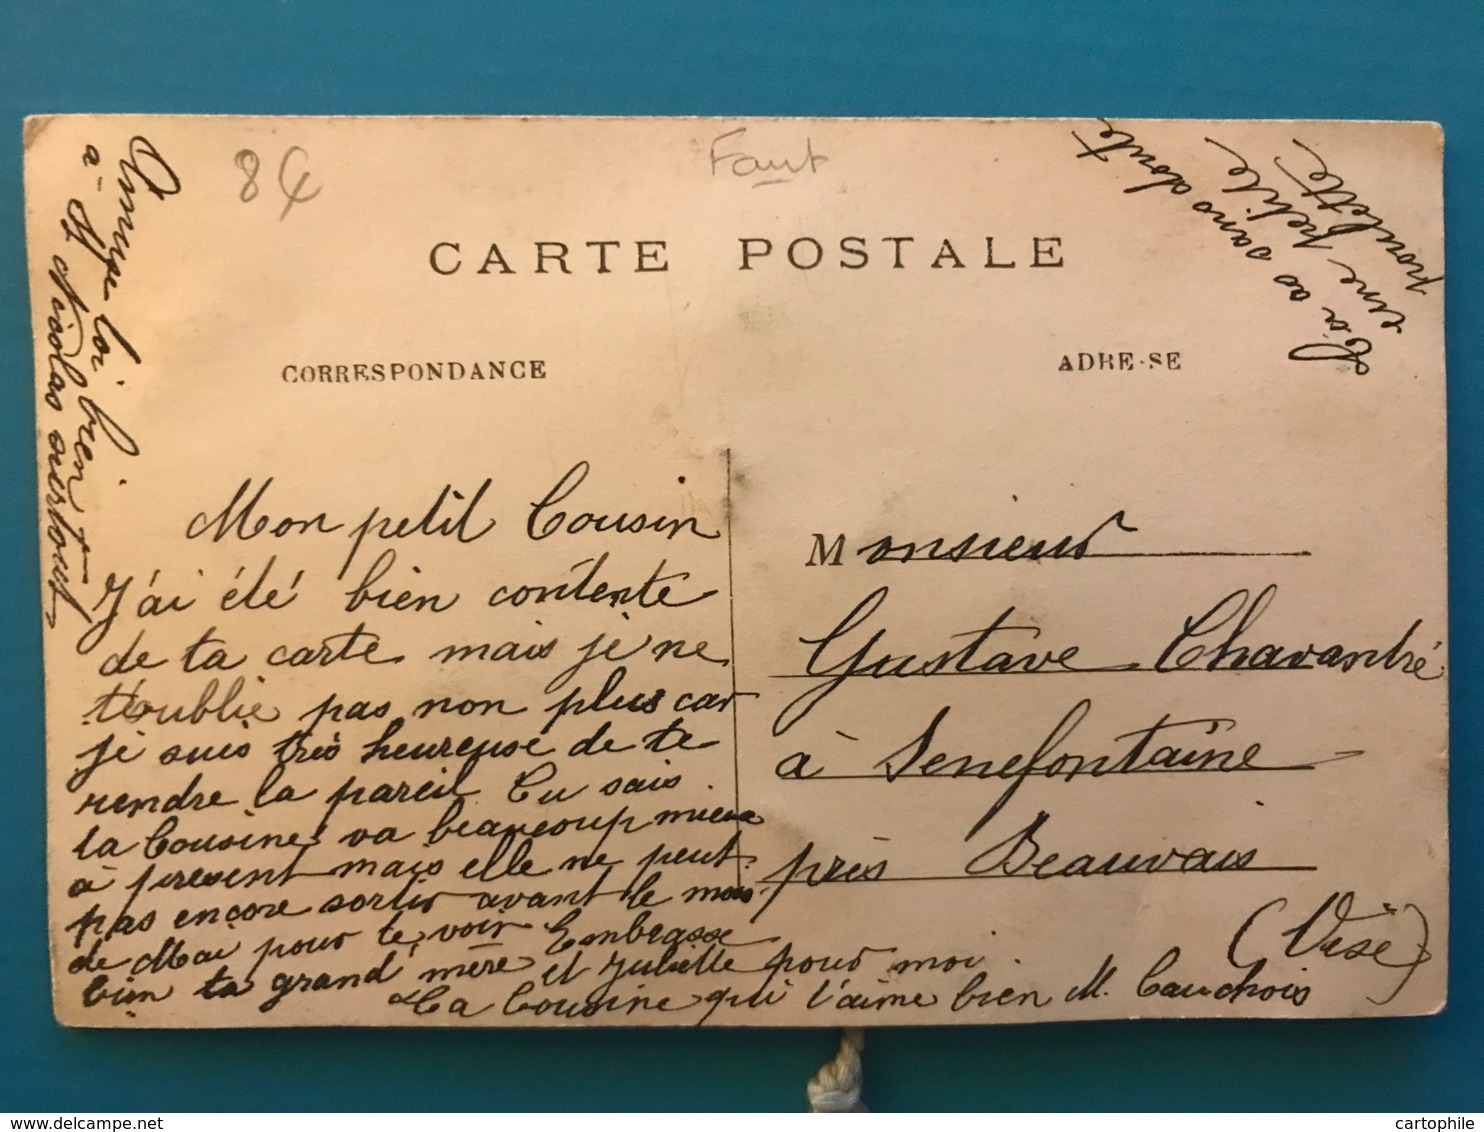 84
Faut
CARTE POSTALE
CORRESPONDANCE
ADRE-SE
Mon petit Cousin
J'ai été bien contente
de ta carte mais je ne
t'oublie pas non plus car
je suis très heureuse de te
rendre la pareil. Tu sais
ta Cousine va beaucoup mieux
à present mais elle ne peut
pas encore sortir avant le mois
de Mai pour te voir Embrasse
bien ta grand' mère et Juliette pour moi.
Ta Cousine qui t'aime bien M. Cauchois
Amuse toi bien
à St Nicolas surtout
Tu as sans doute
une petite
poulette
Monsieur
Gustave Chavantré
à Senefontaine
près Beauvais
(Oise)
cartophile